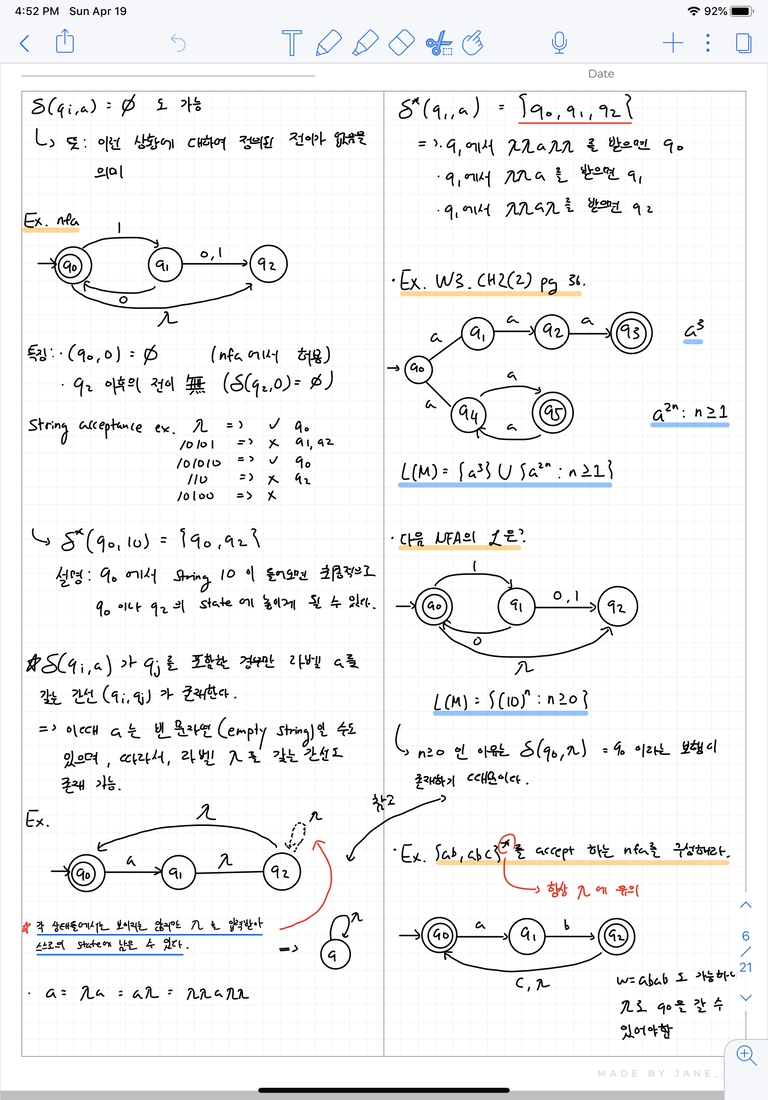 4:52 PM Sun Apr 19
92%
Date
δ(qi,a) = ∅ 도 가능
↳ 뜻: 이런 상황에 대하여 정의된 전이가 없음을
의미
Ex. nfa
1
q0 q1 0,1 q2
0
λ
특징: · (q0,0) = ∅ (nfa에서 허용)
· q2 이후의 전이 無 (δ(q2,0) = ∅)
String acceptance ex. λ => ✓ q0
10101 => × q1,q2
101010 => ✓ q0
110 => × q2
10100 => ×
↳ δ*(q0,10) = {q0,q2}
설명: q0 에서 string 10 이 들어오면 최종적으로
q0 이나 q2 의 state에 놓이게 될 수 있다.
☆δ(qi,a) 가 qj를 포함한 경우만 라벨 a를
갖는 간선 (qi,qj) 가 존재한다.
=> 이때 a는 빈 문자열 (empty string)일 수도
있으며, 따라서, 라벨 λ를 갖는 간선도
존재 가능.
Ex.
λ λ
q0 a q1 λ q2
☆ 각 상태들에서는 보이지는 않지만 λ를 입력받아
스스로의 state에 남을 수 있다.
=> q λ
· a = λa = aλ = λλaλλ
δ*(q1,a) = {q0,q1,q2}
=> · q1에서 λλaλλ를 받으면 q0
· q1에서 λλa를 받으면 q1
· q1에서 λλaλ를 받으면 q2
· Ex. W3. CH2(2) pg 36.
a q1 a q2 a q3 a³
q0
a q4 a q5
a
a²ⁿ : n≥1
L(M) = {a³} ∪ {a²ⁿ : n≥1}
· 다음 NFA의 L은?
1
q0 q1 0,1 q2
0
λ
L(M) = {(10)ⁿ : n≥0}
↳ n≥0 인 이유는 δ(q0,λ) = q0 이라는 보행이
존재하기 때문이다.
참고
· Ex. {ab, abc}* 를 accept 하는 nfa를 구성해라.
→ 항상 λ에 유의
q0 a q1 b q2
C,λ
w=abab 도 가능하니
λ로 q0을 갈 수
있어야함
6
/
21
MADE BY JANE_